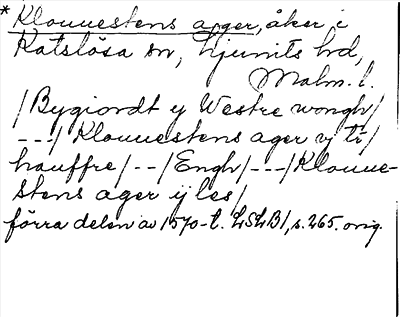 * Klouuestens ager, åker i
Katslösa sn, Ljunits hd,
Malm. l.
/Bygiordt y Westre wongh/
---/Klouuestens ager vj tr/
hauffre/--/Engh/---/Klouue-
stens ager ij les/
förra delen av 1570-t. LSLB1, s. 265. orig.